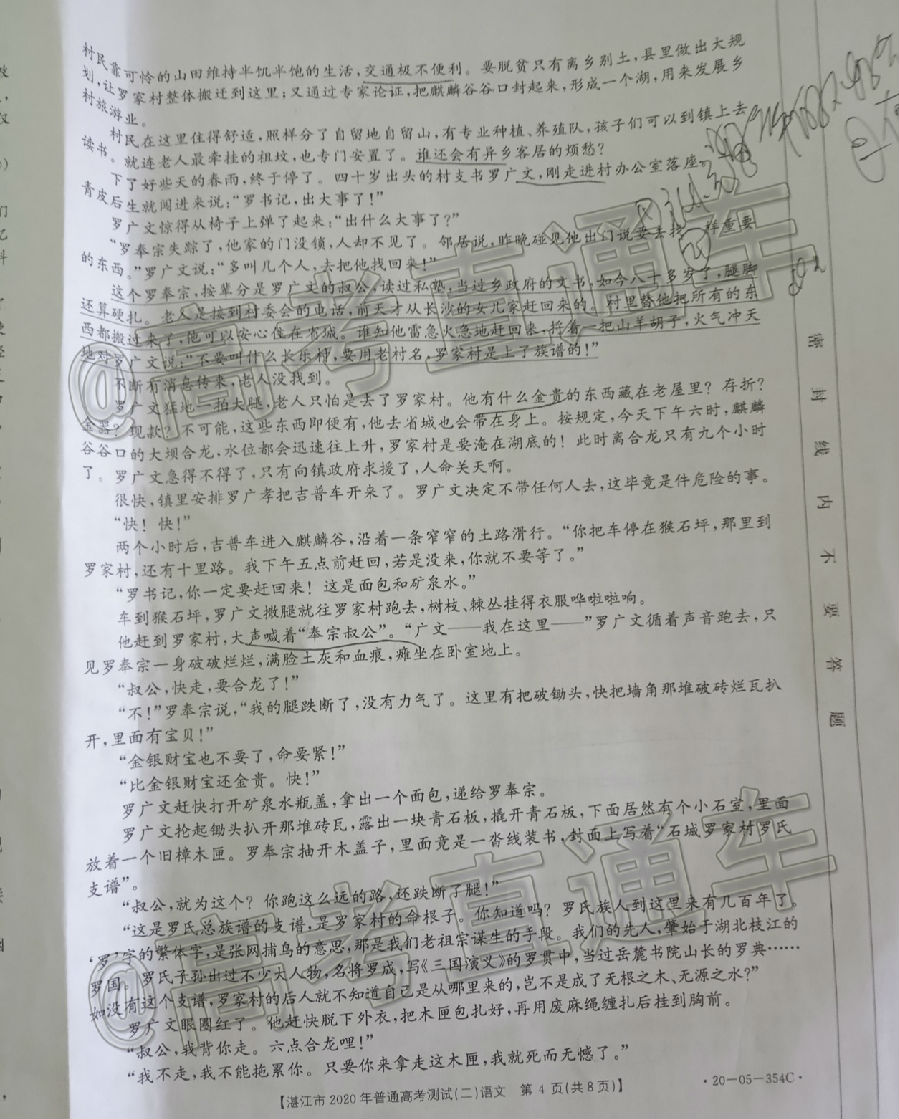 村民靠可怜的山田维持半饥半饱的生活，交通极不便利。要脱贫只有离乡别土，县里做出大规
划，让罗家村整体搬迁到这里；又通过专家论证，把麒麟谷谷口封起来，形成一个湖，用来发展乡
村旅游业。
村民在这里住得舒适，照样分了自留地自留山，有专业种植、养殖队，孩子们可以到镇上去
读书。就连老人最牵挂的祖坟，也专门安置了。谁还会有异乡客居的烦愁？
下了好些天的春雨，终于停了。四十岁出头的村支书罗广文，刚走进村办公室落座，一个
青皮后生就闯进来说：“罗书记，出大事了！”
罗广文惊得从椅子上弹了起来：“出什么大事了？”
“罗奉宗失踪了，他家的门没锁，人却不见了。邻居说，昨晚碰见他出门说要去找一样重要
的东西。”罗广文说：“多叫几个人，去把他找回来！”
这个罗奉宗，按辈分是罗广文的叔公，读过私塾，当过乡政府的文书，如今八十多岁了，腿脚
还算硬扎。老人是接到村委会的电话，前天才从长沙的女儿家赶回来的。村里替他把所有的东
西都搬过来了，他可以安心住在省城。谁知他雷急火急地赶回来，捋着一把山羊胡子，火气冲天
地对罗广文说：“不要叫什么长乐冲，要用老村名，罗家村是上了族谱的！”
不断有消息传来，老人没找到。
罗广文猛地一拍大腿，老人只怕是去了罗家村。他有什么金贵的东西藏在老屋里？存折？
金器？现款？不可能，这些东西即便有，他去省城也会带在身上。按规定，今天下午六时，麒麟
谷谷口的大坝合龙，水位都会迅速往上升，罗家村是要淹在湖底的！此时离合龙只有九个小时
了。罗广文急得不得了，只有向镇政府求援了，人命关天啊。
很快，镇里安排罗广孝把吉普车开来了。罗广文决定不带任何人去，这毕竟是件危险的事。
“快！快！”
两个小时后，吉普车进入麒麟谷，沿着一条窄窄的土路滑行。“你把车停在猴石坪，那里到
罗家村，还有十里路。我下午五点前赶回，若是没来，你就不要等了。”
“罗书记，你一定要赶回来！这是面包和矿泉水。”
车到猴石坪，罗广文撒腿就往罗家村跑去，树枝、棘丛挂得衣服哗啦啦响。
他赶到罗家村，大声喊着“奉宗叔公”。“广文——我在这里——”罗广文循着声音跑去，只
见罗奉宗一身破破烂烂，满脸土灰和血痕，瘫坐在卧室地上。
“叔公，快走，要合龙了！”
“不！”罗奉宗说，“我的腿跌断了，没有力气了。这里有把破锄头，快把墙角那堆破砖烂瓦扒
开，里面有宝贝！”
“金银财宝也不要了，命要紧！”
“比金银财宝还金贵。快！”
罗广文赶快打开矿泉水瓶盖，拿出一个面包，递给罗奉宗。
罗广文抡起锄头扒开那堆砖瓦，露出一块青石板，撬开青石板，下面居然有个小石室，里面
放着一个旧樟木匣。罗奉宗抽开木盖子，里面竟是一沓线装书，封面上写着“石城罗家村罗氏
支谱”。
“叔公，就为这个？你跑这么远的路，还跌断了腿！”
“这是罗氏总族谱的支谱，是罗家村的命根子。你知道吗？罗氏族人到这里来有几百年了，
‘罗’字的繁体字，是张网捕鸟的意思，那是我们老祖宗谋生的手段。我们的先人，肇始于湖北枝江的
罗国。罗氏子孙出过不少大人物，名将罗成，写《三国演义》的罗贯中，当过岳麓书院山长的罗典……
如没有这个支谱，罗家村的后人就不知道自己是从哪里来的，岂不是成了无根之木、无源之水？”
罗广文眼圈红了。他赶快脱下外衣，把木匣包扎好，再用废麻绳缠扎后挂到胸前。
“叔公，我背你走。六点合龙哩！”
“我不走，我不能拖累你。只要你来拿走这木匣，我就死而无憾了。”
【湛江市2020年普通高考测试（二）语文 第4页（共8页）】
·20-05-354C·
密封线内不要答题
@高考直通车
@高考直通车